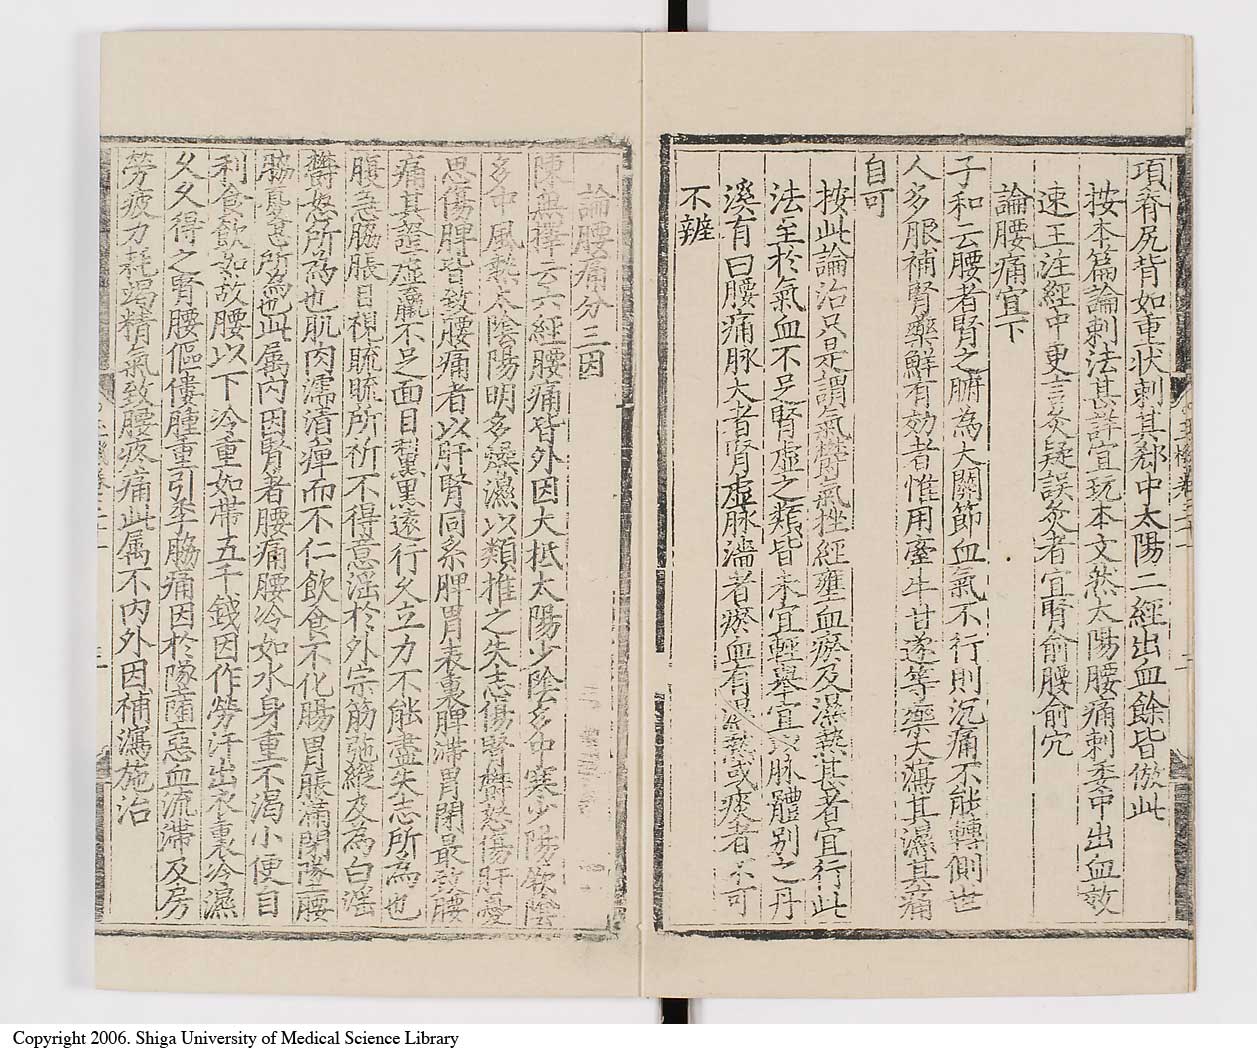 項脊尻背如重状刺其郄中太陽二經出血餘皆倣此
按本篇論刺法甚詳宜玩本文然太陽腰痛刺委中出血效
速王注經中更言灸疑誤灸者宜腎俞腰俞穴
論腰痛宜下
子和云腰者腎之腑為大關節血氣不行則沉痛不能轉側世
人多服補腎藥鮮有効者惟用牽牛甘遂等藥大瀉其濕其痛
自可
按此論治只是謂氣欎氣挫經壅血瘀及濕熱甚者宜行此
法至於氣血不足腎虚之類皆未宜輕舉宜以脉體別之丹
溪有曰腰痛脉大者腎虚脉濇者瘀血有濕熱或痰者不可
不辨
論腰痛分三因
陳無擇云六經腰痛皆外因大柢太陽少陰多中寒少陽厥陰
多中風熱太陰陽明多燥濕以類推之失志傷腎欎怒傷肝憂
思傷脾皆致腰痛者以肝腎同系脾胃表裏脾滯胃閉最致腰
痛其證虚羸不足面目黧黑遠行久立力不能盡失志所為也
腹急脇脹目視䀮䀮所祈不得意滛於外宗筋弛縱及為白滛
欎怒所為也肌肉濡漬痺而不仁飲食不化腸胃脹滿閉墜腰
脇憂思所為也此属内因腎著腰痛腰冷如水身重不渴小便自
利食飲如故腰以下冷重如帶五千錢因作勞汗出衣裏冷濕
久久得之腎腰傴僂腫重引季脇痛因於墜墮惡血流滯及房
勞疲力耗竭精氣致腰疼痛此属不内外因補瀉施治
Copyright 2006. Shiga University of Medical Science Library